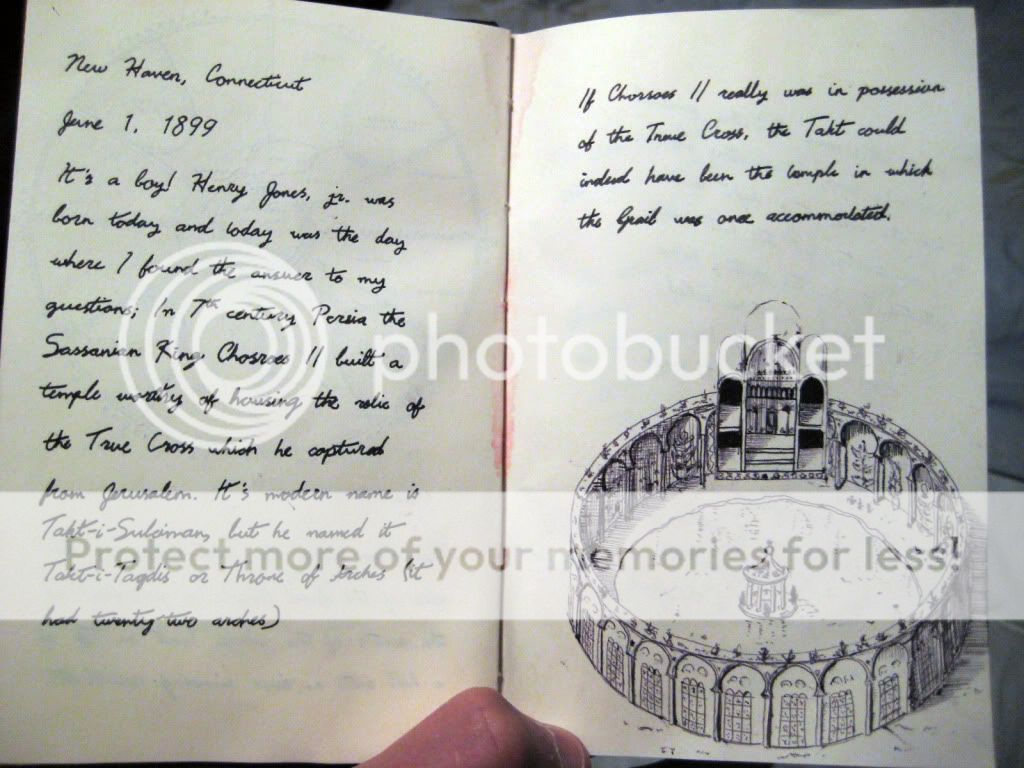 New Haven, Connecticut
June 1, 1899
It's a boy! Henry Jones, jr. was
born today and today was the day
where I found the answer to my
questions; In 7th century Persia the
Sassanian King Chosroes II built a
temple worthy of housing the relic of
the True Cross which he captured
from Jerusalem. It's modern name is
Takt-i-Suleiman, but he named it
Takt-i-Taqdis or Throne of Arches (it
had twenty-two arches)
If Chosroes II really was in possession
of the True Cross, the Takt could
indeed have been the temple in which
the Grail was once accommodated.
photobucket
Protect more of your memories for less!